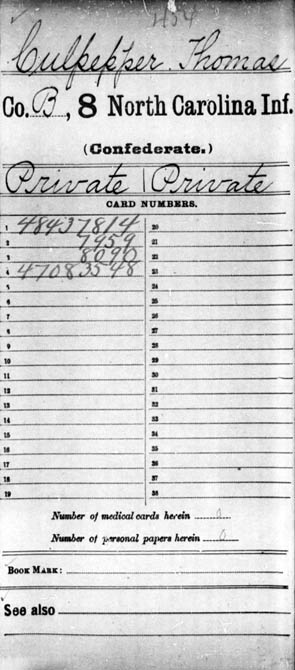 454
Culpepper, Thomas
Co. B, 8 North Carolina Inf.
(Confederate.)
Private | Private
CARD NUMBERS.
1 48437814 20
2 7959 21
3 8090 22
4 47083548 23
5 24
6 25
7 26
8 27
9 28
10 29
11 30
12 31
13 32
14 33
15 34
16 35
17 36
18 37
19 38
Number of medical cards herein 0
Number of personal papers herein 0
BOOK MARK:
See also